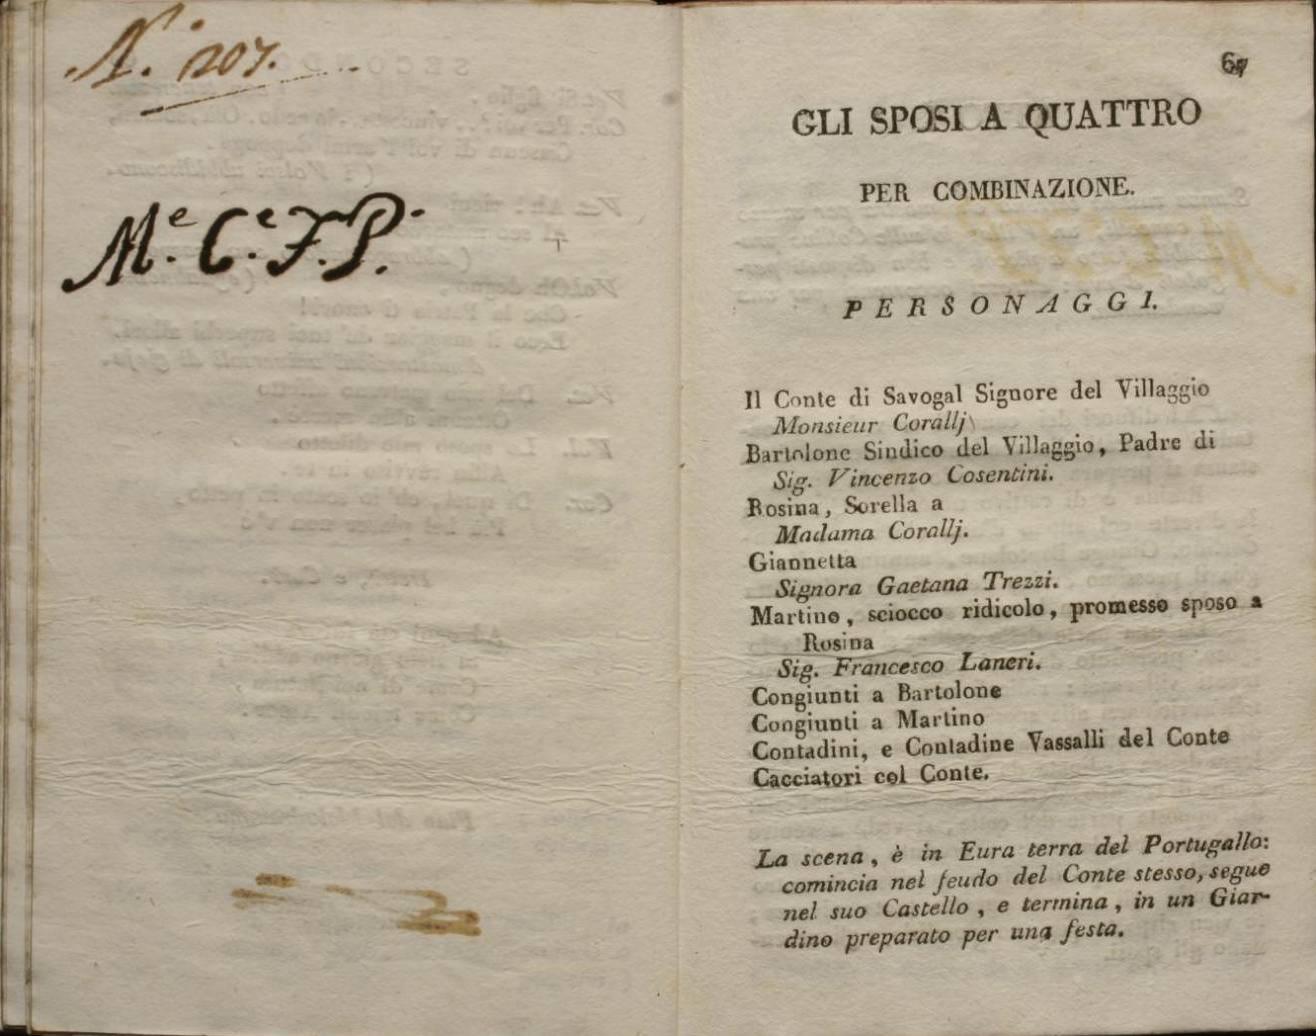 N. 207.
Me. Ce. F. P.
67
GLI SPOSI A QUATTRO
PER COMBINAZIONE.
PERSONAGGI.
Il Conte di Savogal Signore del Villaggio
Monsieur Corallj
Bartolone Sindico del Villaggio, Padre di
Sig. Vincenzo Cosentini.
Rosina, Sorella a
Madama Corallj.
Giannetta
Signora Gaetana Trezzi.
Martino, sciocco ridicolo, promesso sposo a
Rosina
Sig. Francesco Laneri.
Congiunti a Bartolone
Congiunti a Martino
Contadini, e Contadine Vassalli del Conte
Cacciatori col Conte.
La scena, è in Eura terra del Portugallo:
comincia nel feudo del Conte stesso, segue
nel suo Castello, e termina, in un Giar-
dino preparato per una festa.